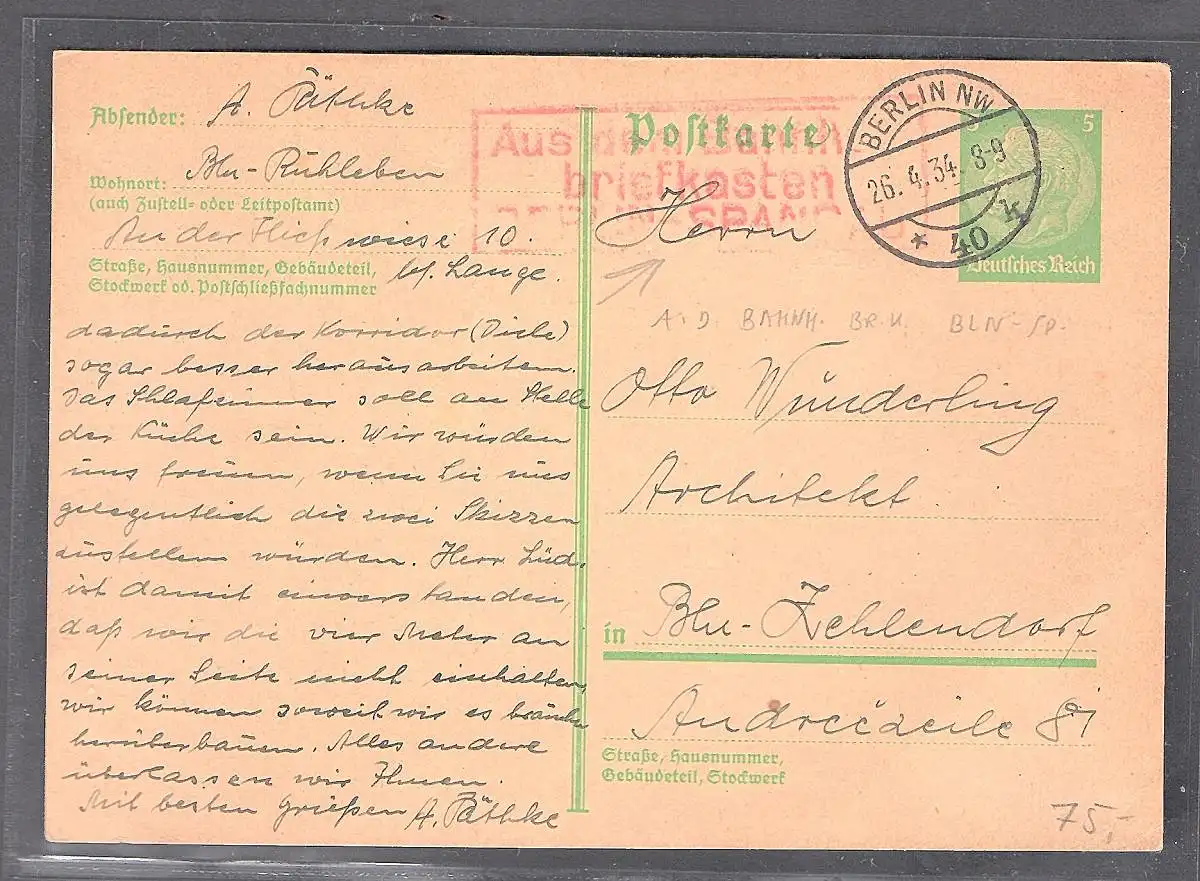 Absender: A. Päthke
Bln-Ruhleben
Wohnort:
(auch Zustell- oder Leitpostamt)
An der Fließwiese 10.
Straße, Hausnummer, Gebäudeteil, bei Lange.
Stockwerk od. Postschließfachnummer
dadurch der Korridor (Diele)
sogar besser herausarbeiten.
Das Schlafzimmer soll an Stelle
der Küche sein. Wir würden
uns freuen, wenn Sie uns
gelegentlich die zwei Skizzen
zustellen würden. Herr Lüd.
ist damit einverstanden,
daß wir die vier Meter an
seiner Seite nicht einhalten,
wir können soweit wir es brauchen
herüberbauen. Alles andere
überlassen wir Ihnen.
Mit besten Grüßen A. Päthke
Postkarte
Aus dem Bahnh.
briefkasten
BERLIN-SPAND
BERLIN NW
26.4.34. 8-9
* 40 k
5 5
Deutsches Reich
Herrn
A. D. BAHNH. BR.K. BLN-SP.
Otto Wunderling
Architekt
in Bln-Zehlendorf
Andréezeile
Straße, Hausnummer,
Gebäudeteil, Stockwerk
75,-